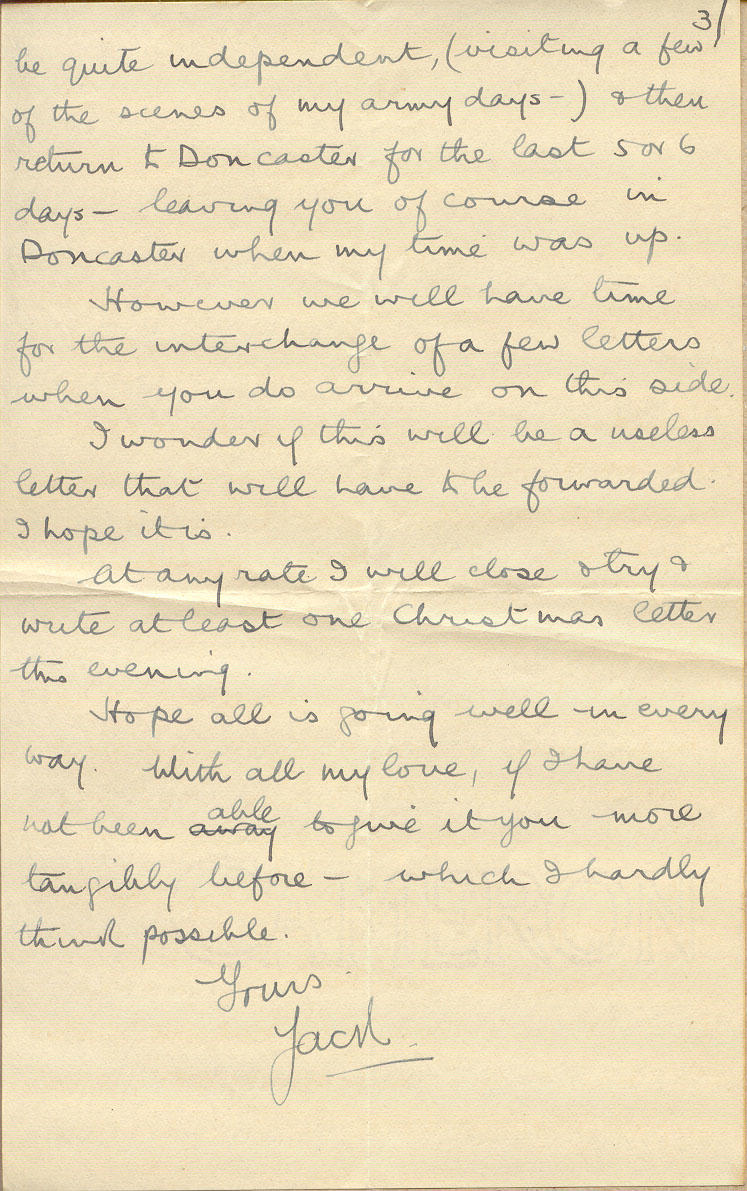 3/
be quite independent, (visiting a few
of the scenes of my army days-) & then
return to Doncaster for the last 5 or 6
days- leaving you of course in
Doncaster when my time was up.
However we will have time
for the interchange of a few letters
when you do arrive on this side.
I wonder if this will be a useless
letter that will have to be forwarded.
I hope it is.
At any rate I will close & try &
write at least one Christmas letter
this evening.
Hope all is going well in every
way. With all my love, if I have
not been away able to give it you more
tangibly before - which I hardly
think possible.
Yours
Jack